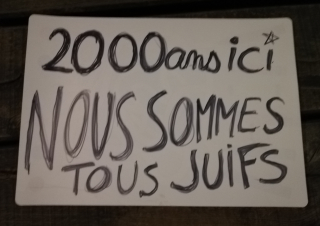 2000 ans ici
NOUS SOMMES
TOUS JUIFS